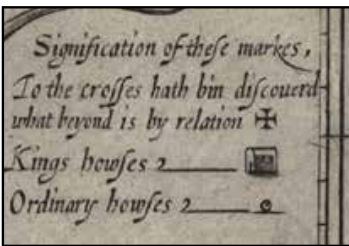 Signification of these markes,
To the crosses hath bin discouerd
what beyond is by relation ✠
Kings howses 2
Ordinary howses 2